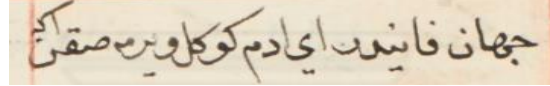 جهان فانيدر اي ادم كوكل ويرمه صقن اكا